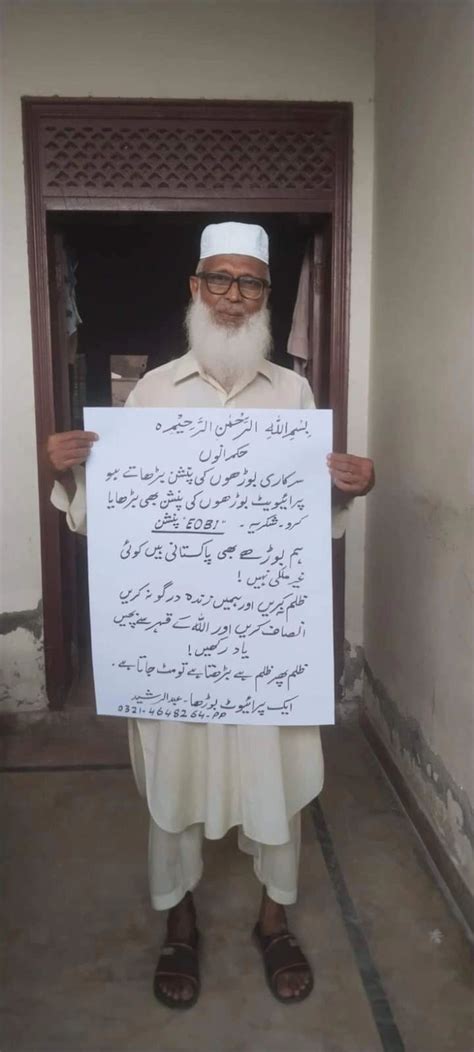 بِسْمِ اللّٰهِ الرَّحْمٰنِ الرَّحِيْمِ ه
حکمرانوں
سرکاری بوڑھوں کی پنشن بڑھاتے ہو
پرائیویٹ بوڑھوں کی پنشن بھی بڑھایا
کرو۔ شکریہ۔ "EOBI" پنشن
ہم بوڑھے بھی پاکستانی ہیں کوئی
غیر ملکی نہیں!
ظلم نہ کریں اور ہمیں زندہ درگو نہ کریں
انصاف کریں اور اللہ کے قہر سے بچیں
یاد رکھیں!
ظلم پھر ظلم ہے بڑھتا ہے تو مٹ جاتا ہے۔
ایک پرائیوٹ بوڑھا۔ عبدالرشید
0321-4648264-PP